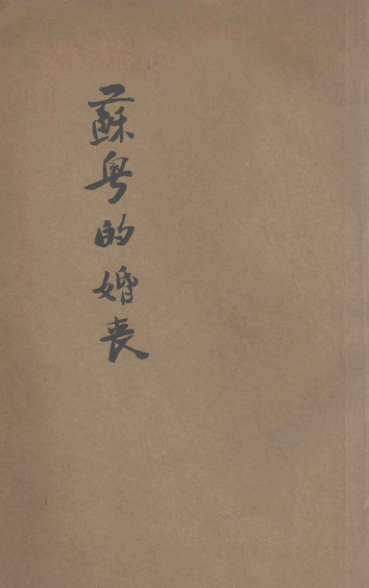 蘇粵的婚喪